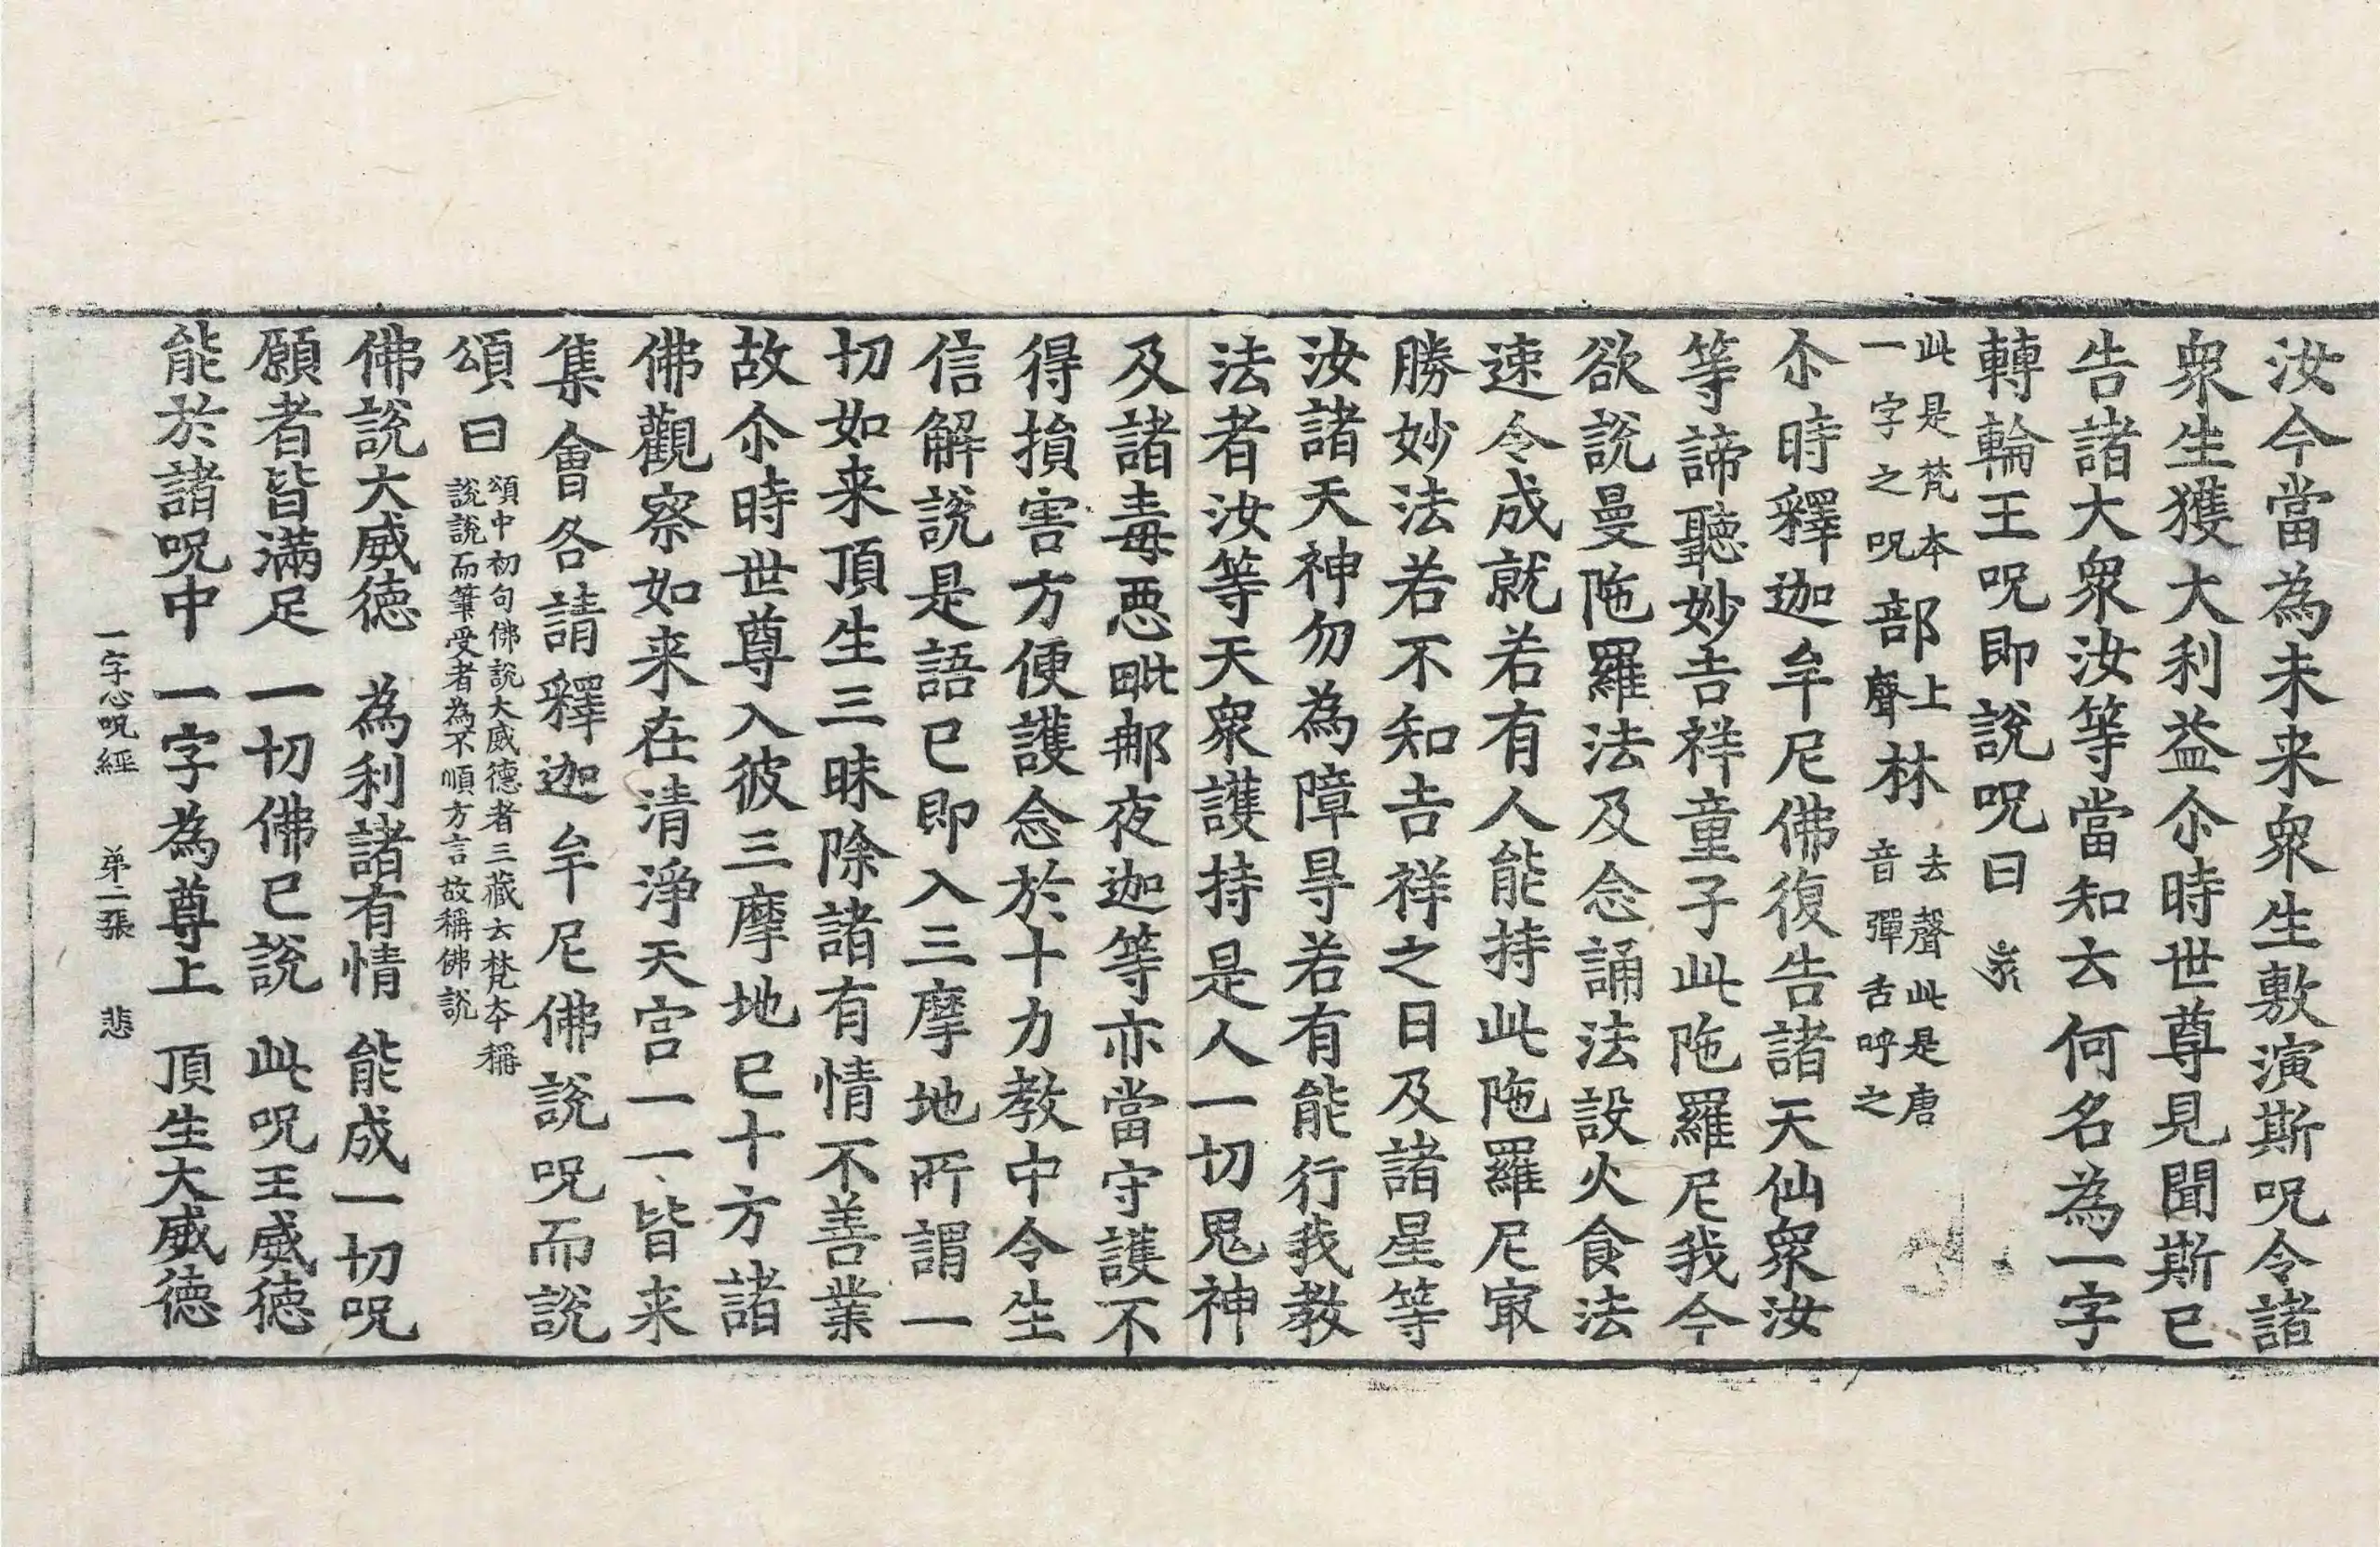 汝今當為未来衆生敷演斯呪令諸
衆生獲大利益尒時世尊見聞斯已
告諸大衆汝等當知去何名為一字
轉輪王呪即說呪曰
此是梵本
一字之呪
部
上
聲
林
去聲此是唐
音彈舌呼之
尒時釋迦牟尼佛復告諸天仙衆汝
等諦聽妙吉祥童子此陁羅尼我今
欲說曼陁羅法及念誦法設火食法
速令成就若有人能持此陁羅尼㝡
勝妙法若不知吉祥之日及諸星等
汝諸天神勿為障㝵若有能行我教
法者汝等天衆護持是人一切鬼神
及諸毒惡毗那夜迦等亦當守護不
得損害方便護念於十力教中令生
信解說是語已即入三摩地所謂一
切如来頂生三昧除諸有情不善業
故尒時世尊入彼三摩地已十方諸
佛觀察如来在清淨天宮一一皆来
集會各請釋迦牟尼佛說呪而說
頌曰
頌中初句佛說大威德者三藏去梵本稱
說說而筆受者為不順方言故稱佛說
佛說大威德 為利諸有情 能成一切呪
願者皆滿足 一切佛已說 此呪王威德
能於諸呪中 一字為尊上 頂生大威德
一字心呪經 弟二張 悲